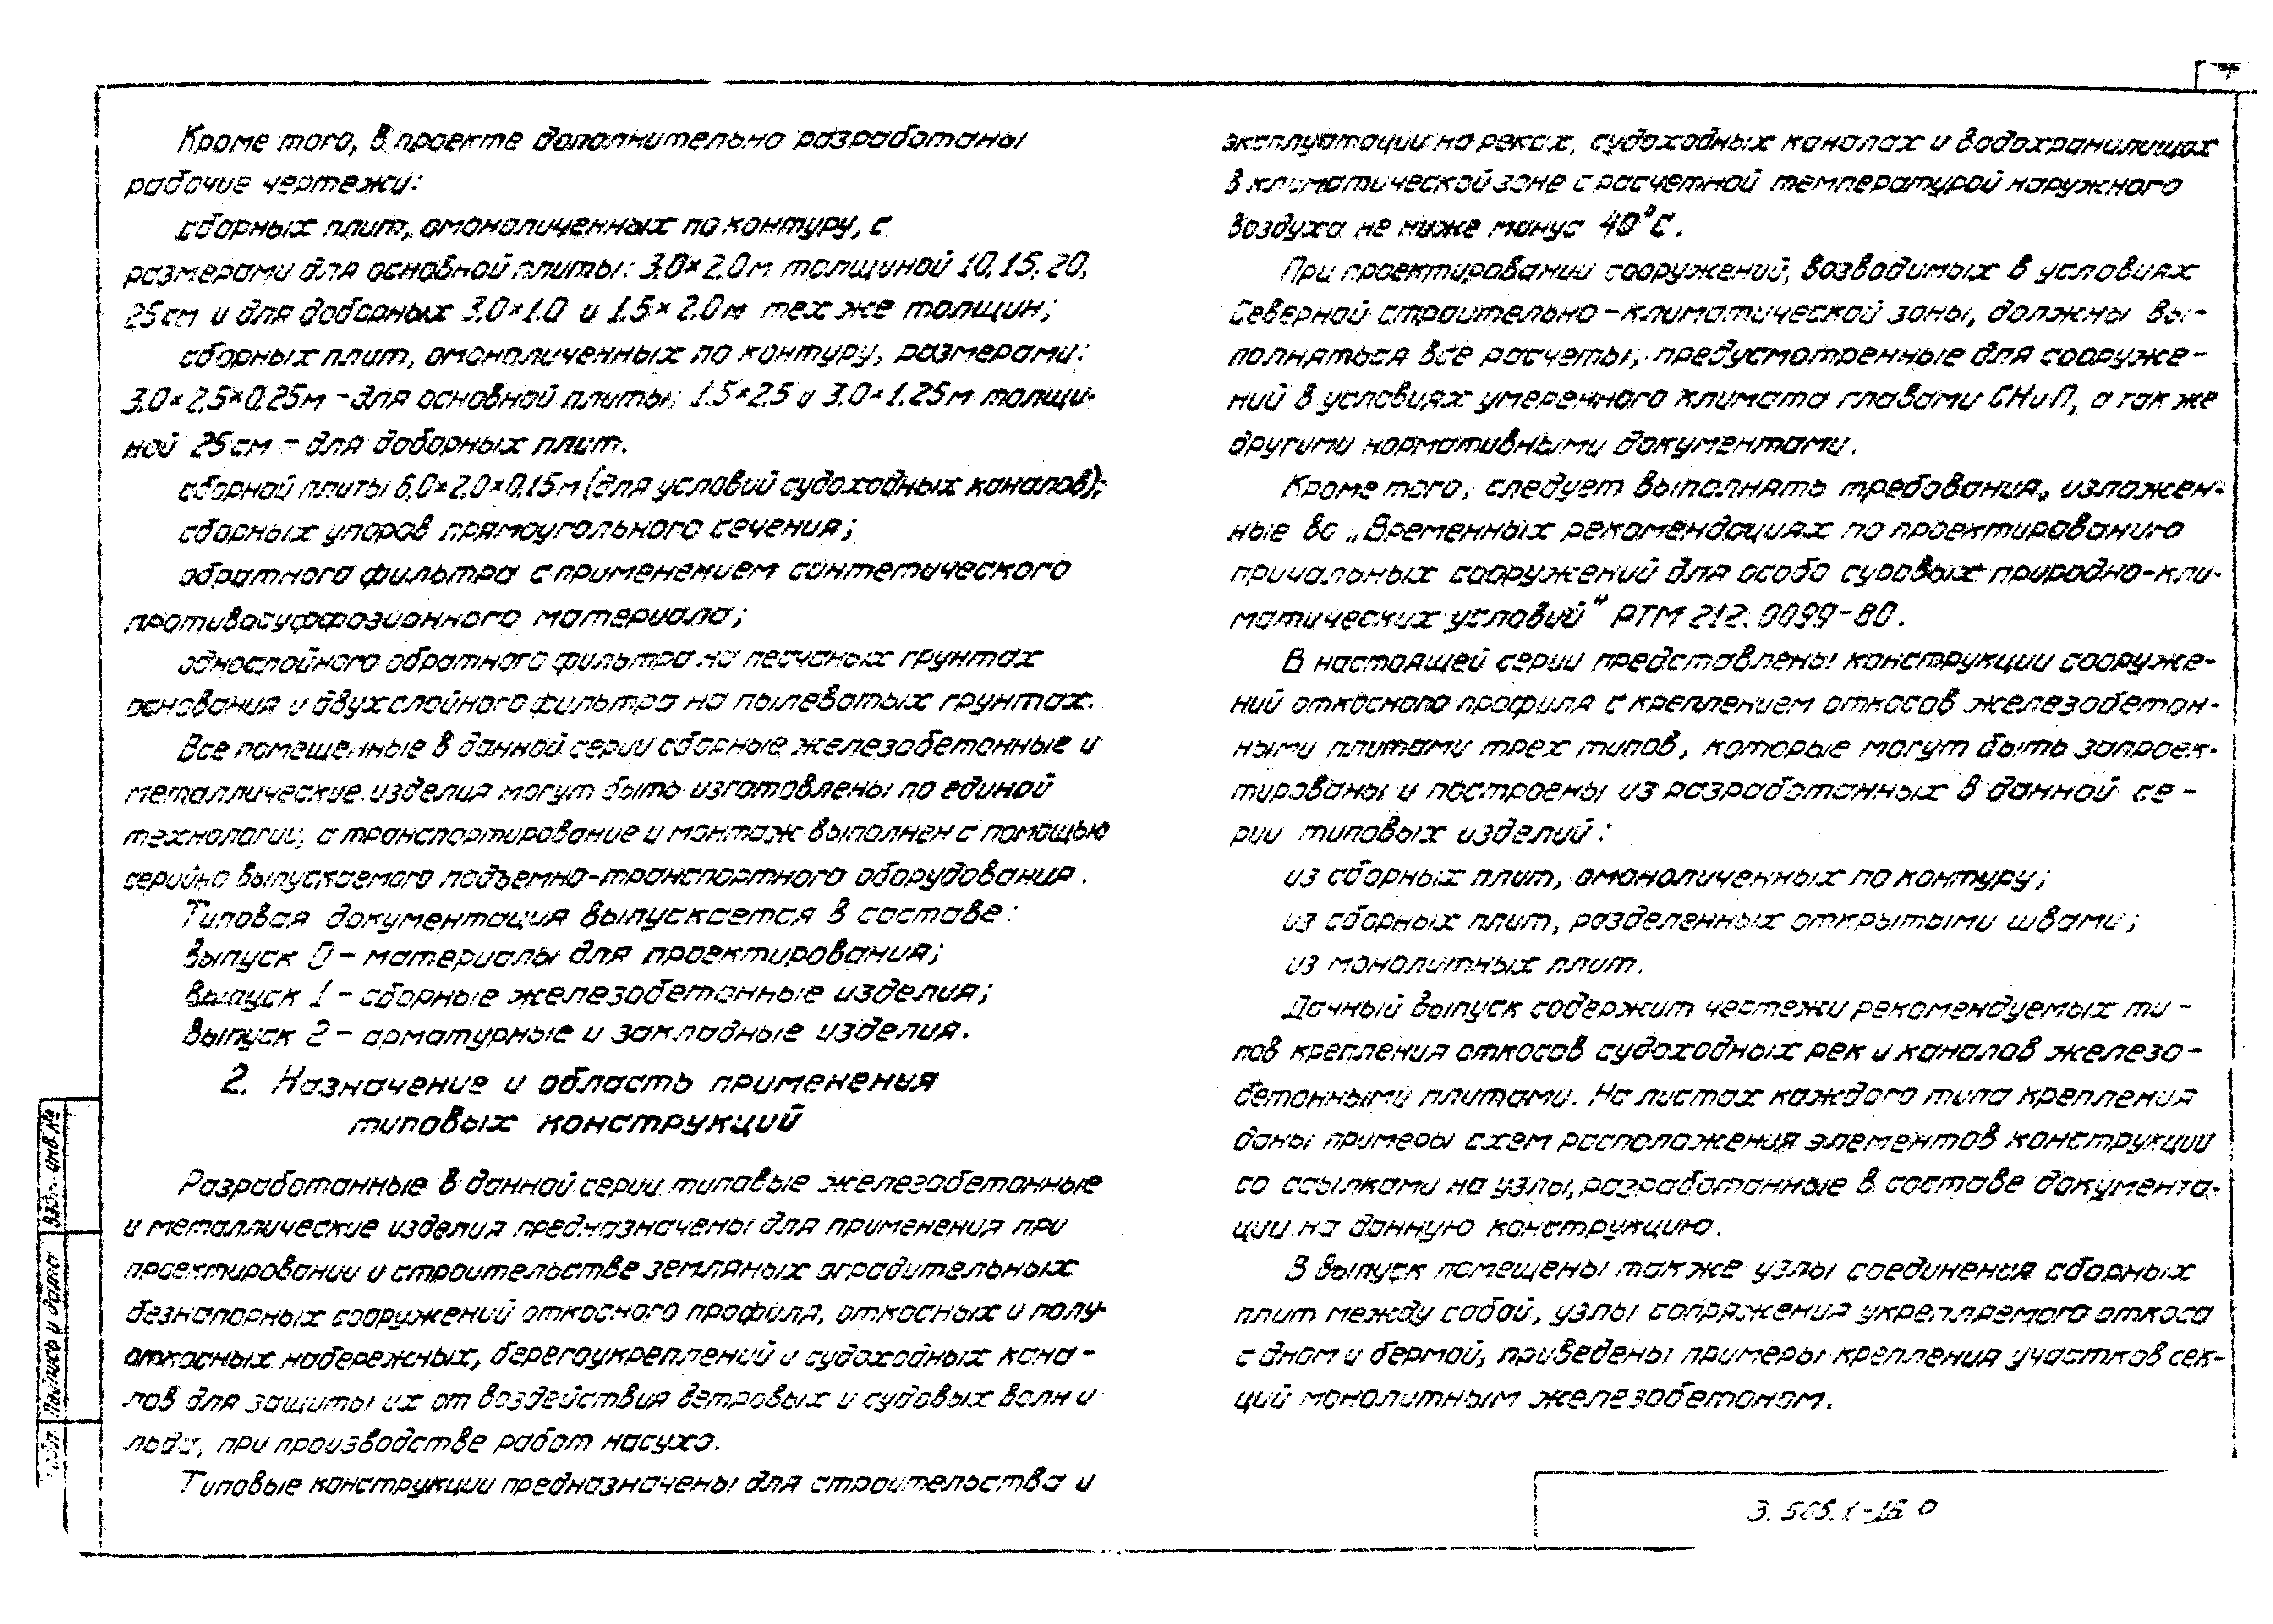 Кроме того, в проекте дополнительно разработаны
рабочие чертежи:
сборных плит, омоноличенных по контуру, с
размерами для основной плиты: 3,0×2,0м толщиной 10, 15, 20,
25см и для доборных 3,0×1,0 и 1,5×2,0м тех же толщин;
сборных плит, омоноличенных по контуру, размерами:
3,0×2,5×0,25м - для основной плиты; 1,5×2,5 и 3,0×1,25м толщи-
ной 25см - для доборных плит.
сборной плиты 6,0×2,0×0,15м (для условий судоходных каналов);
сборных упоров прямоугольного сечения;
обратного фильтра с применением синтетического
противосуффозионного материала;
однослойного обратного фильтра на песчаных грунтах
основания и двухслойного фильтра на пылеватых грунтах.
Все помещенные в данной серии сборные железобетонные и
металлические изделия могут быть изготовлены по единой
технологии, а транспортирование и монтаж выполнен с помощью
серийно выпускаемого подъемно-транспортного оборудования.
Типовая документация выпускается в составе:
выпуск 0 - материалы для проектирования;
выпуск 1 - сборные железобетонные изделия;
выпуск 2 - арматурные и закладные изделия.
2. Назначение и область применения
типовых конструкций
Разработанные в данной серии типовые железобетонные
и металлические изделия предназначены для применения при
проектировании и строительстве земляных оградительных
безнапорных сооружений откосного профиля, откосных и полу-
откосных набережных, берегоукреплений и судоходных кана-
лов для защиты их от воздействия ветровых и судовых волн и
льда, при производстве работ насухо.
Типовые конструкции предназначены для строительства и
эксплуатации на реках, судоходных каналах и водохранилищах
в климатической зоне с расчетной температурой наружного
воздуха не ниже минус 40°С.
При проектировании сооружений, возводимых в условиях
Северной строительно-климатической зоны, должны вы-
полняться все расчеты, предусмотренные для сооруже-
ний в условиях умеренного климата главами СНиП, а так же
другими нормативными документами.
Кроме того, следует выполнять требования, изложен-
ные во „Временных рекомендациях по проектированию
причальных сооружений для особо суровых природно-кли-
матических условий" РТМ 212.0099-80.
В настоящей серии представлены конструкции сооруже-
ний откосного профиля с креплением откосов железобетон-
ными плитами трех типов, которые могут быть запроек-
тированы и построены из разработанных в данной се-
рии типовых изделий:
из сборных плит, омоноличенных по контуру;
из сборных плит, разделенных открытыми швами;
из монолитных плит.
Данный выпуск содержит чертежи рекомендуемых ти-
пов крепления откосов судоходных рек и каналов железо-
бетонными плитами. На листах каждого типа крепления
даны примеры схем расположения элементов конструкции
со ссылками на узлы, разработанные в составе документа-
ции на данную конструкцию.
В выпуск помещены также узлы соединения сборных
плит между собой, узлы сопряжения укрепляемого откоса
с дном и бермой, приведены примеры крепления участков сек-
ций монолитным железобетоном.
Взам. инв.№
Подпись и дата
подл.